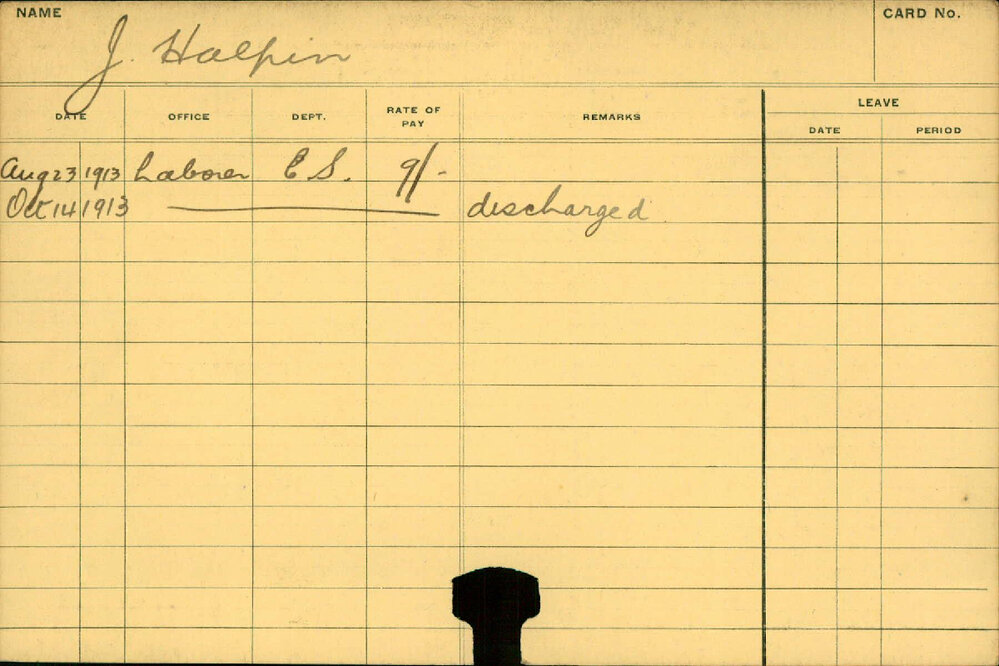 NAME
J. Halpin
CARD No.
LEAVE
DATE OFFICE DEPT. RATE OF PAY REMARKS DATE PERIOD
Aug 23 1913 Laborer E S. 9/-
Oct 14 1913 discharged